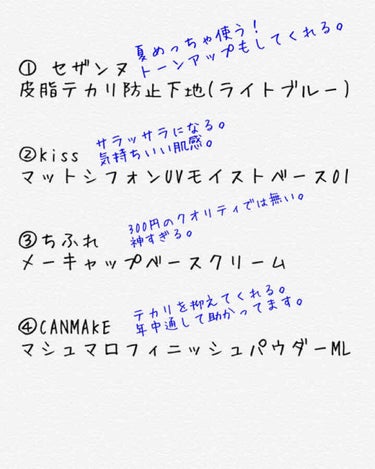 夏めっちゃ使う！
トーンアップもしてくれる。
① セザンヌ
皮脂テカリ防止下地(ライトブルー)
サラッサラになる。
気持ちいい肌感。
②kiss
マットシフォンUVモイストベース01
300円のクオリティでは無い。
神すぎる。
③ちふれ
メーキャップベースクリーム
テカリを抑えてくれる。
年中通して助かってます。
④CANMAKE
マシュマロフィニッシュパウダーML